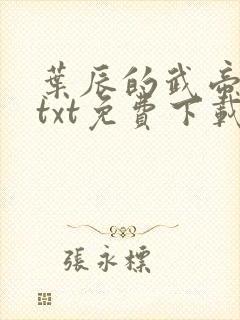 葉辰的武帝
txt免費下載
張永標